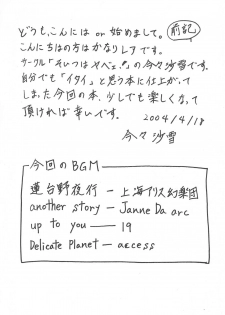 どうも、こんにちは or 始めまして。
前記
こんにちはの方はかなりレアです。
サークル「そいつはヤベェ!」の今々沙雪です。
自分でも「イタイ」と思う本に仕上がって
しまった今回の本、少しでも楽しくなって
頂ければ幸いです。
2004/4/18
今々沙雪
今回のBGM
蓮台野夜行 — 上海アリス幻楽団
another story — Janne Da arc
up to you —— 19
Delicate Planet — access